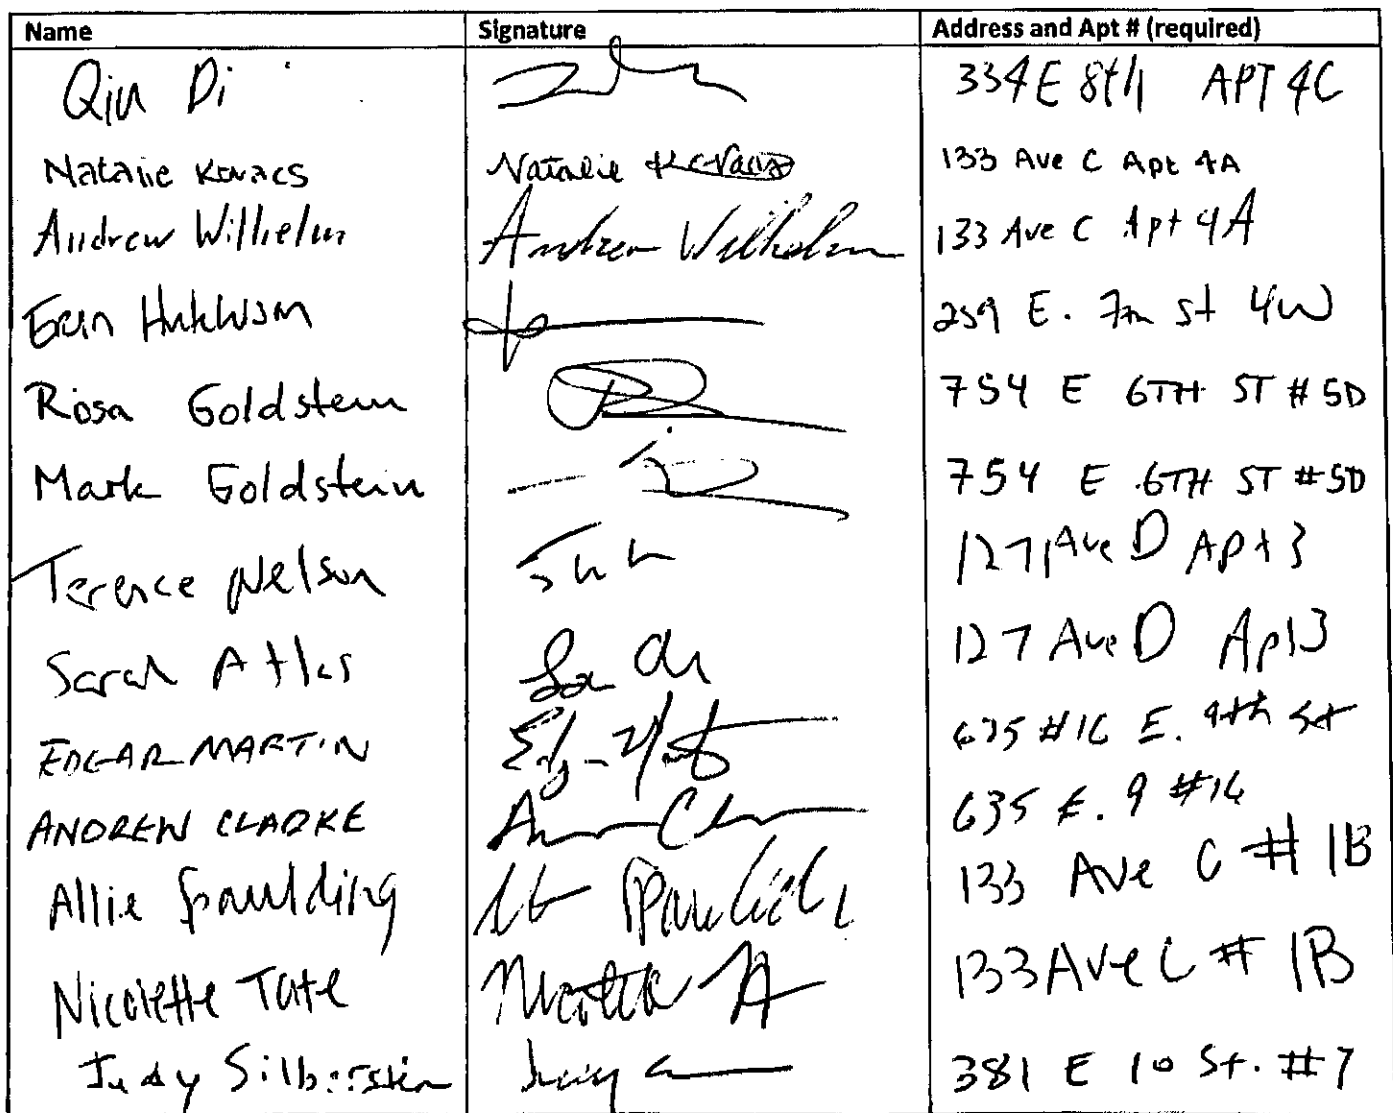 Name Signature Address and Apt # (required)
Qiu Di 334 E 8th APT 4C
Natalie Kovacs Natalie Kovacs 133 Ave C Apt 4A
Andrew Wilhelm Andrew Wilhelm 133 Ave C Apt 4A
Erin 259 E. 7th St 4W
Rosa Goldstein 754 E 6TH ST # 5D
Mark Goldstein 754 E 6TH ST #5D
Terence Nelson 127 Ave D Apt 3
Sarah Atlas 127 Ave D Apt 3
EDGAR MARTIN 635 #1C E. 9th St
ANDREW CLARKE 635 E. 9 #1C
Allie Spaulding 133 Ave C # 1B
Nicolette Tate 133 Ave C # 1B
Judy Silberstein Judy 381 E 10 St. #7